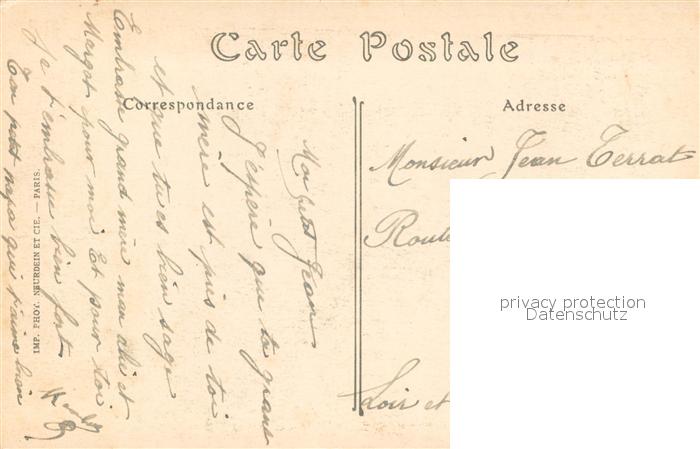 Carte Postale
Correspondance
Adresse
Mon petit Jean
J'espère que ta grand
mère est près de toi
et que tu es bien sage
Embrasse grand mère mem chie et
Margot pour moi Et pour toi
Je t'embrasse bien fort
Ton petit papa qui t'aime bien
Monsieur Jean Terrat
Route
Loir et
IMP. PHOT. NEURDEIN ET CIE. — PARIS.
privacy protection
Datenschutz